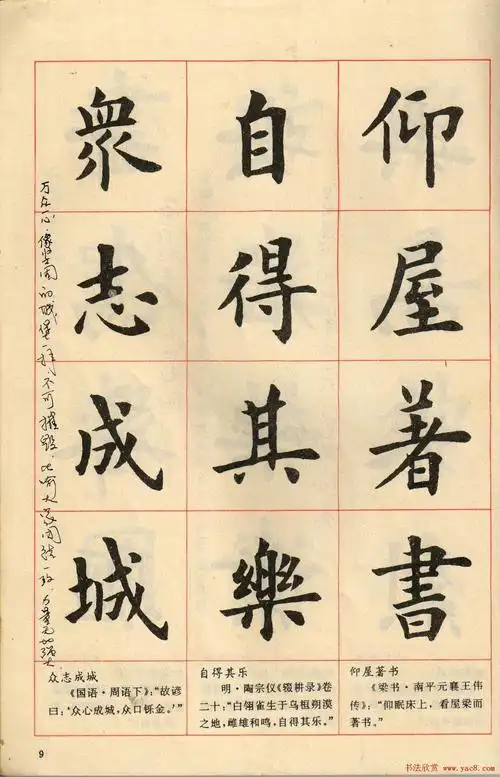 仰屋著書
自得其樂
衆志成城
万众一心，像坚固的城堡一样，不可摧毁，比喻大家团结一致，力量无比强大
仰屋著书
《梁书·南平元襄王伟
传》：“仰眠床上，看屋梁而
著书。”
自得其乐
明·陶宗仪《辍耕录》卷
二十：“白翎雀生于乌桓朔漠
之地，雌雄和鸣，自得其乐。”
众志成城
《国语·周语下》：“故谚
曰：‘众心成城，众口铄金。’”
9
书法欣赏 www.yac8.com